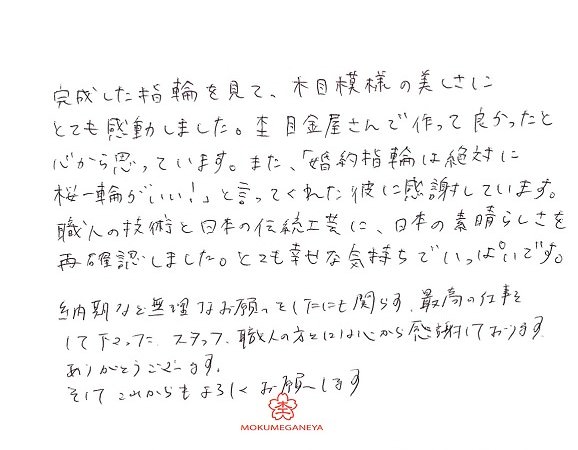 完成した指輪を見て、木目模様の美しさに
とても感動しました。杢目金屋さんで作って良かったと
心から思っています。また、「婚約指輪は絶対に
桜一輪がいい!」と言ってくれた彼に感謝しています。
職人の技術と日本の伝統工芸に、日本の素晴らしさを
再確認しました。とても幸せな気持ちでいっぱいです。
納期など無理なお願いをしたにも関らず、最高の仕事を
して下さった、スタッフ、職人の方々には心から感謝しております
ありがとうございます。
そしてこれからもよろしくお願いします
杢
MOKUMEGANEYA